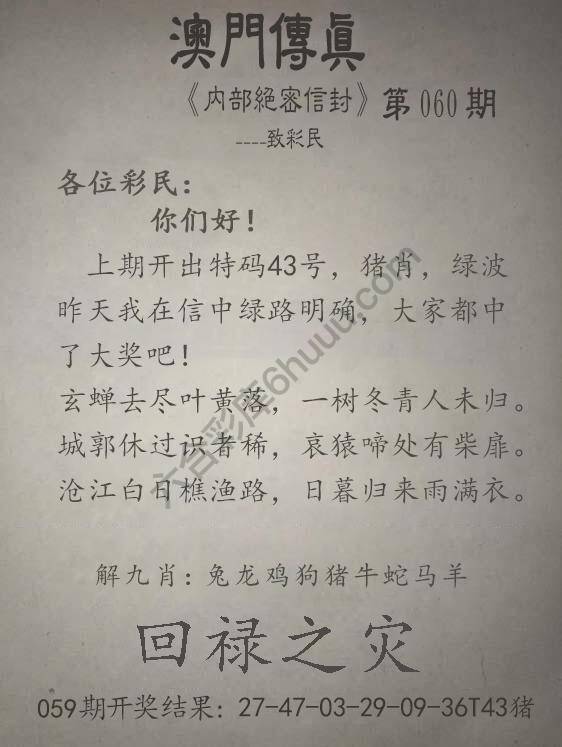 澳門傳眞
《内部絕密信封》第060期
----致彩民
各位彩民：
你们好！
上期开出特码43号，猪肖，绿波
昨天我在信中绿路明确，大家都中
了大奖吧！
玄蝉去尽叶黄落，一树冬青人未归。
城郭休过识者稀，哀猿啼处有柴扉。
沧江白日樵渔路，日暮归来雨满衣。
解九肖：兔龙鸡狗猪牛蛇马羊
回禄之灾
059期开奖结果：27-47-03-29-09-36T43猪
六合彩库6huuu.com